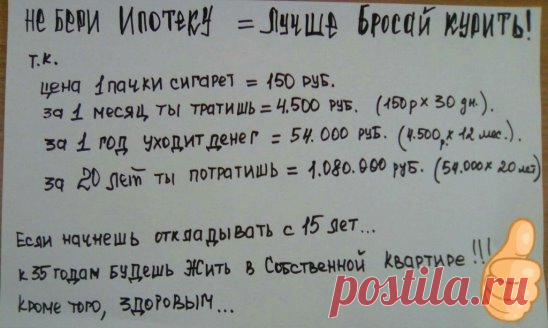 не бери ипотеку = лучше бросай курить!
т.к.
цена 1 пачки сигарет = 150 руб.
за 1 месяц ты тратишь = 4.500 руб. (150р x 30 дн.).
за 1 год уходит денег = 54.000 руб. (4.500р x 12 мес.).
за 20 лет ты потратишь = 1.080.000 руб. (54.000 x 20 лет)
Если начнешь откладывать с 15 лет...
к 35 годам будешь жить в собственной квартире!!!
кроме того, здоровым...
postila.ru